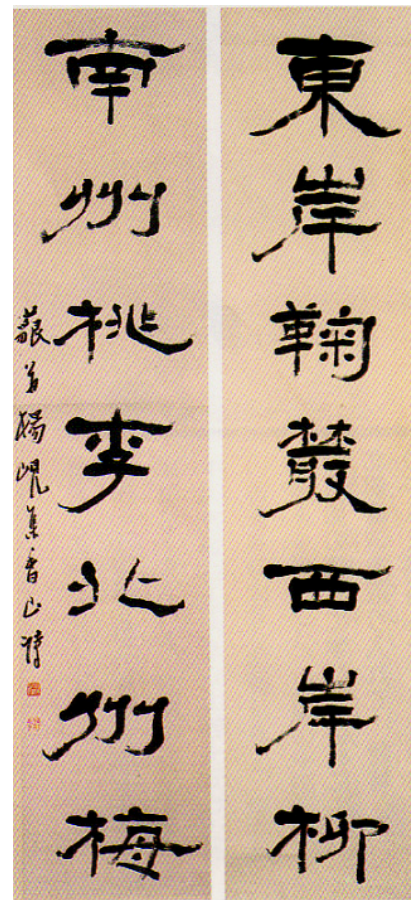 東岸鞠叢西岸柳
南州桃李北州梅
藐翁楊峴集香山詩